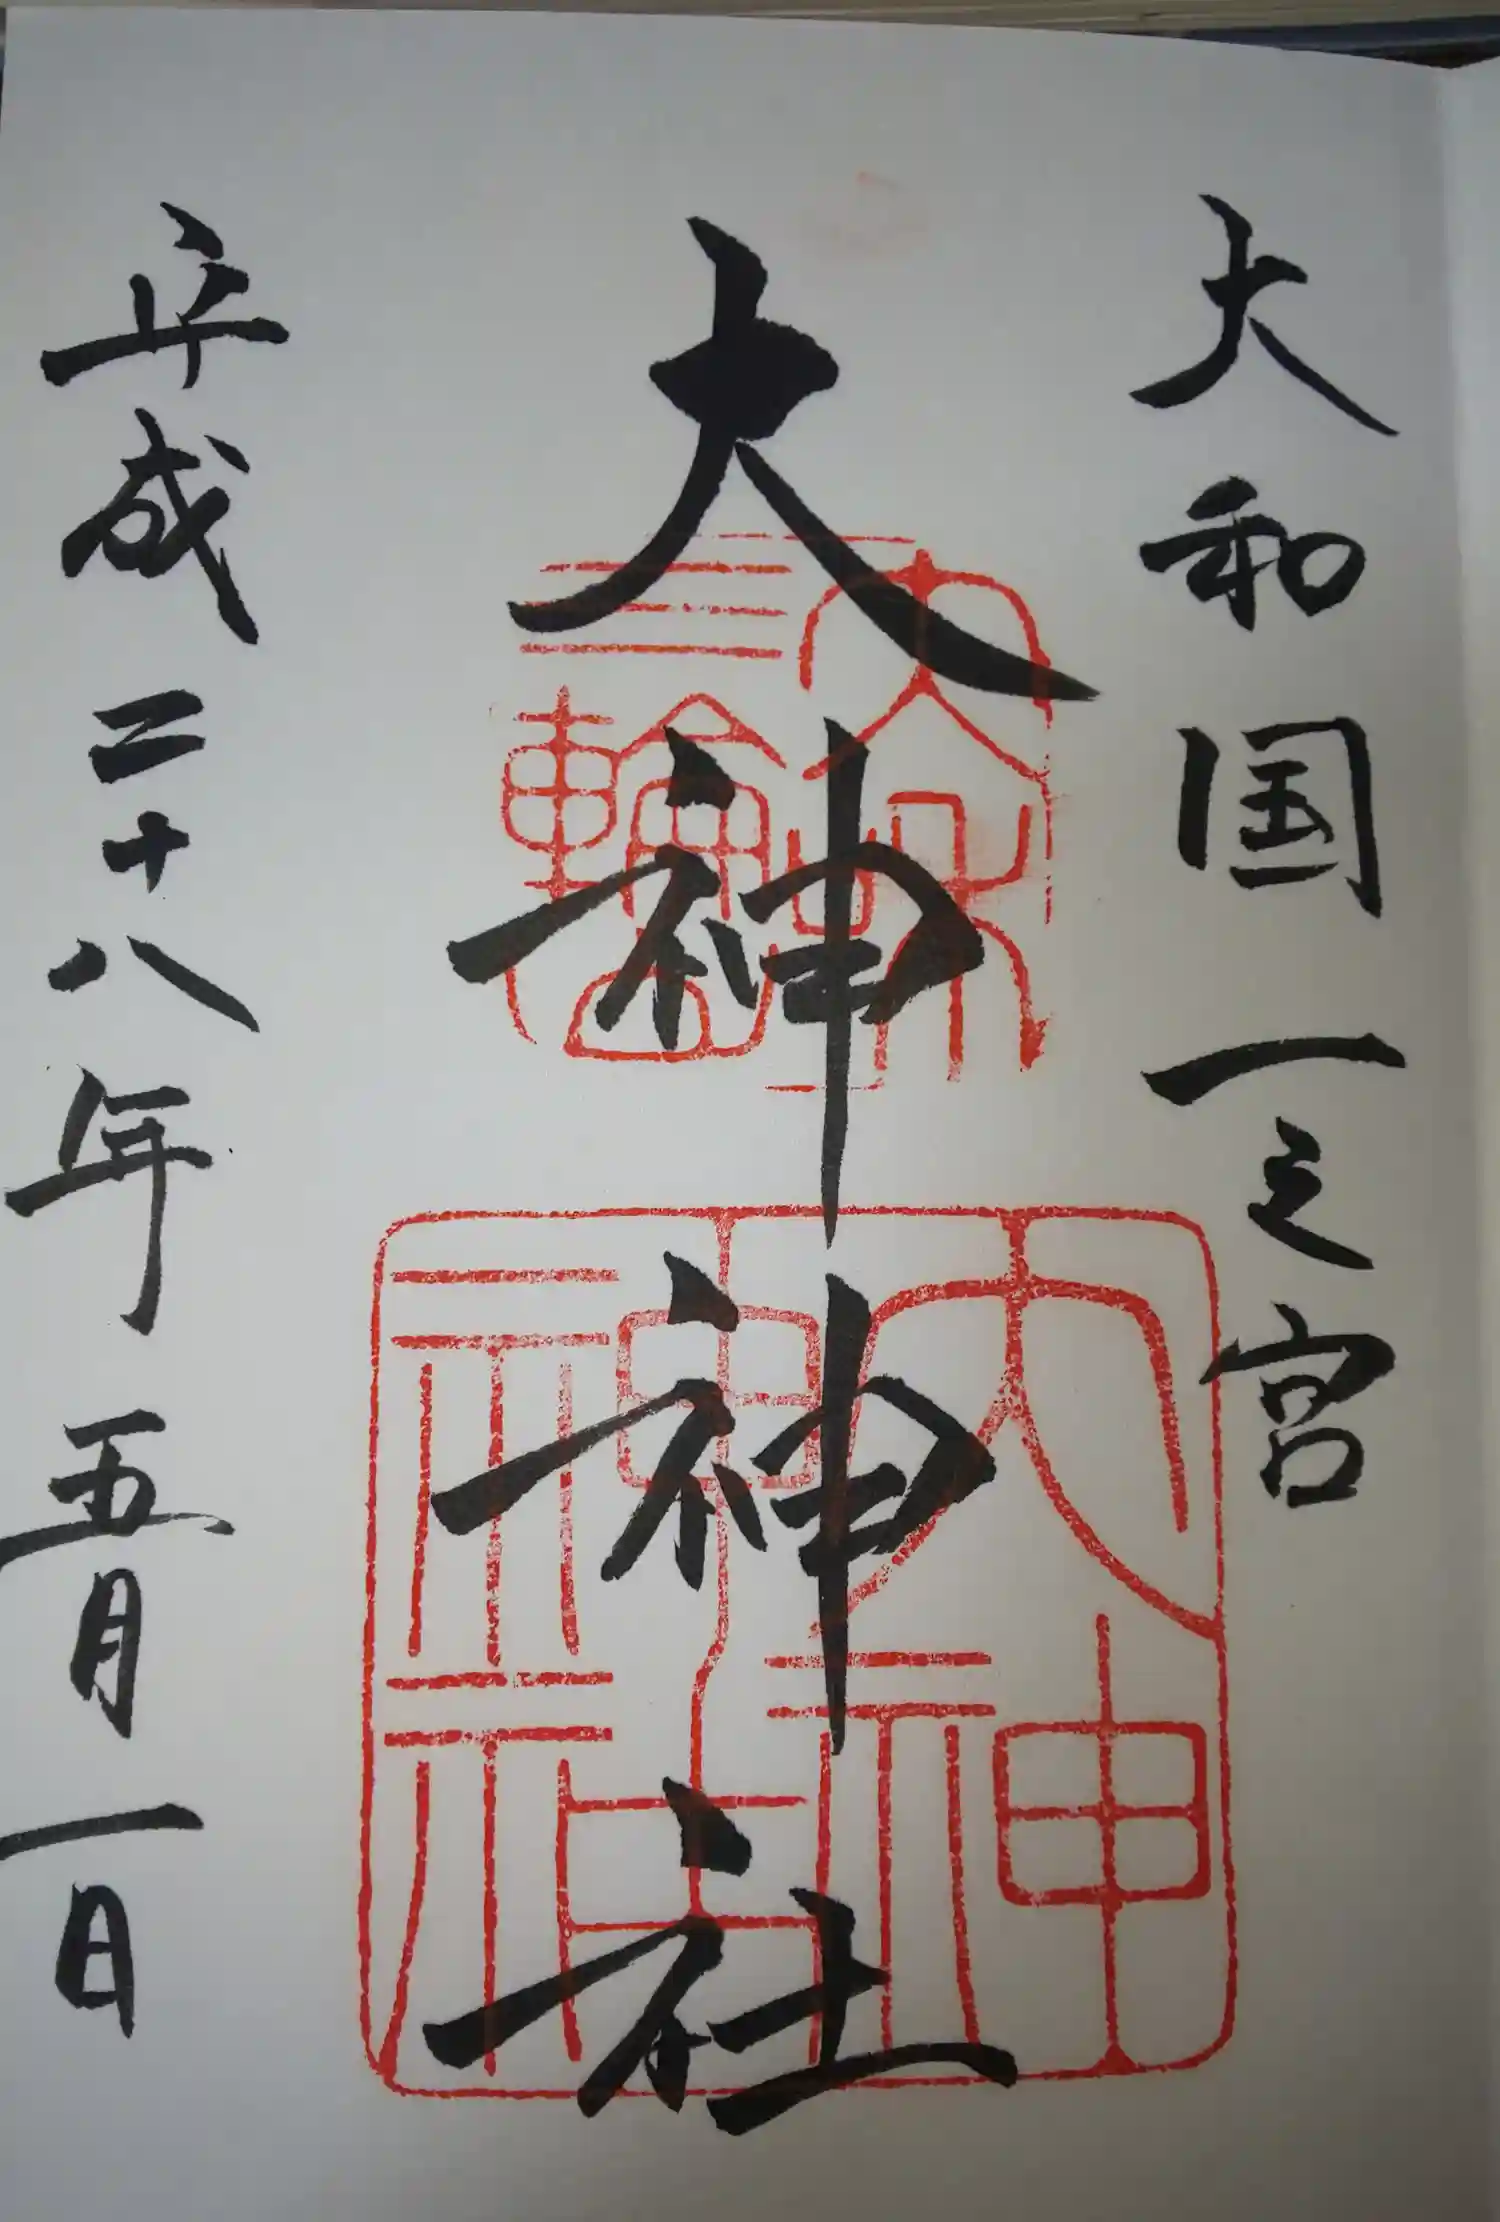 大和国一之宮
大神神社
平成二十八年五月一日
大神神社